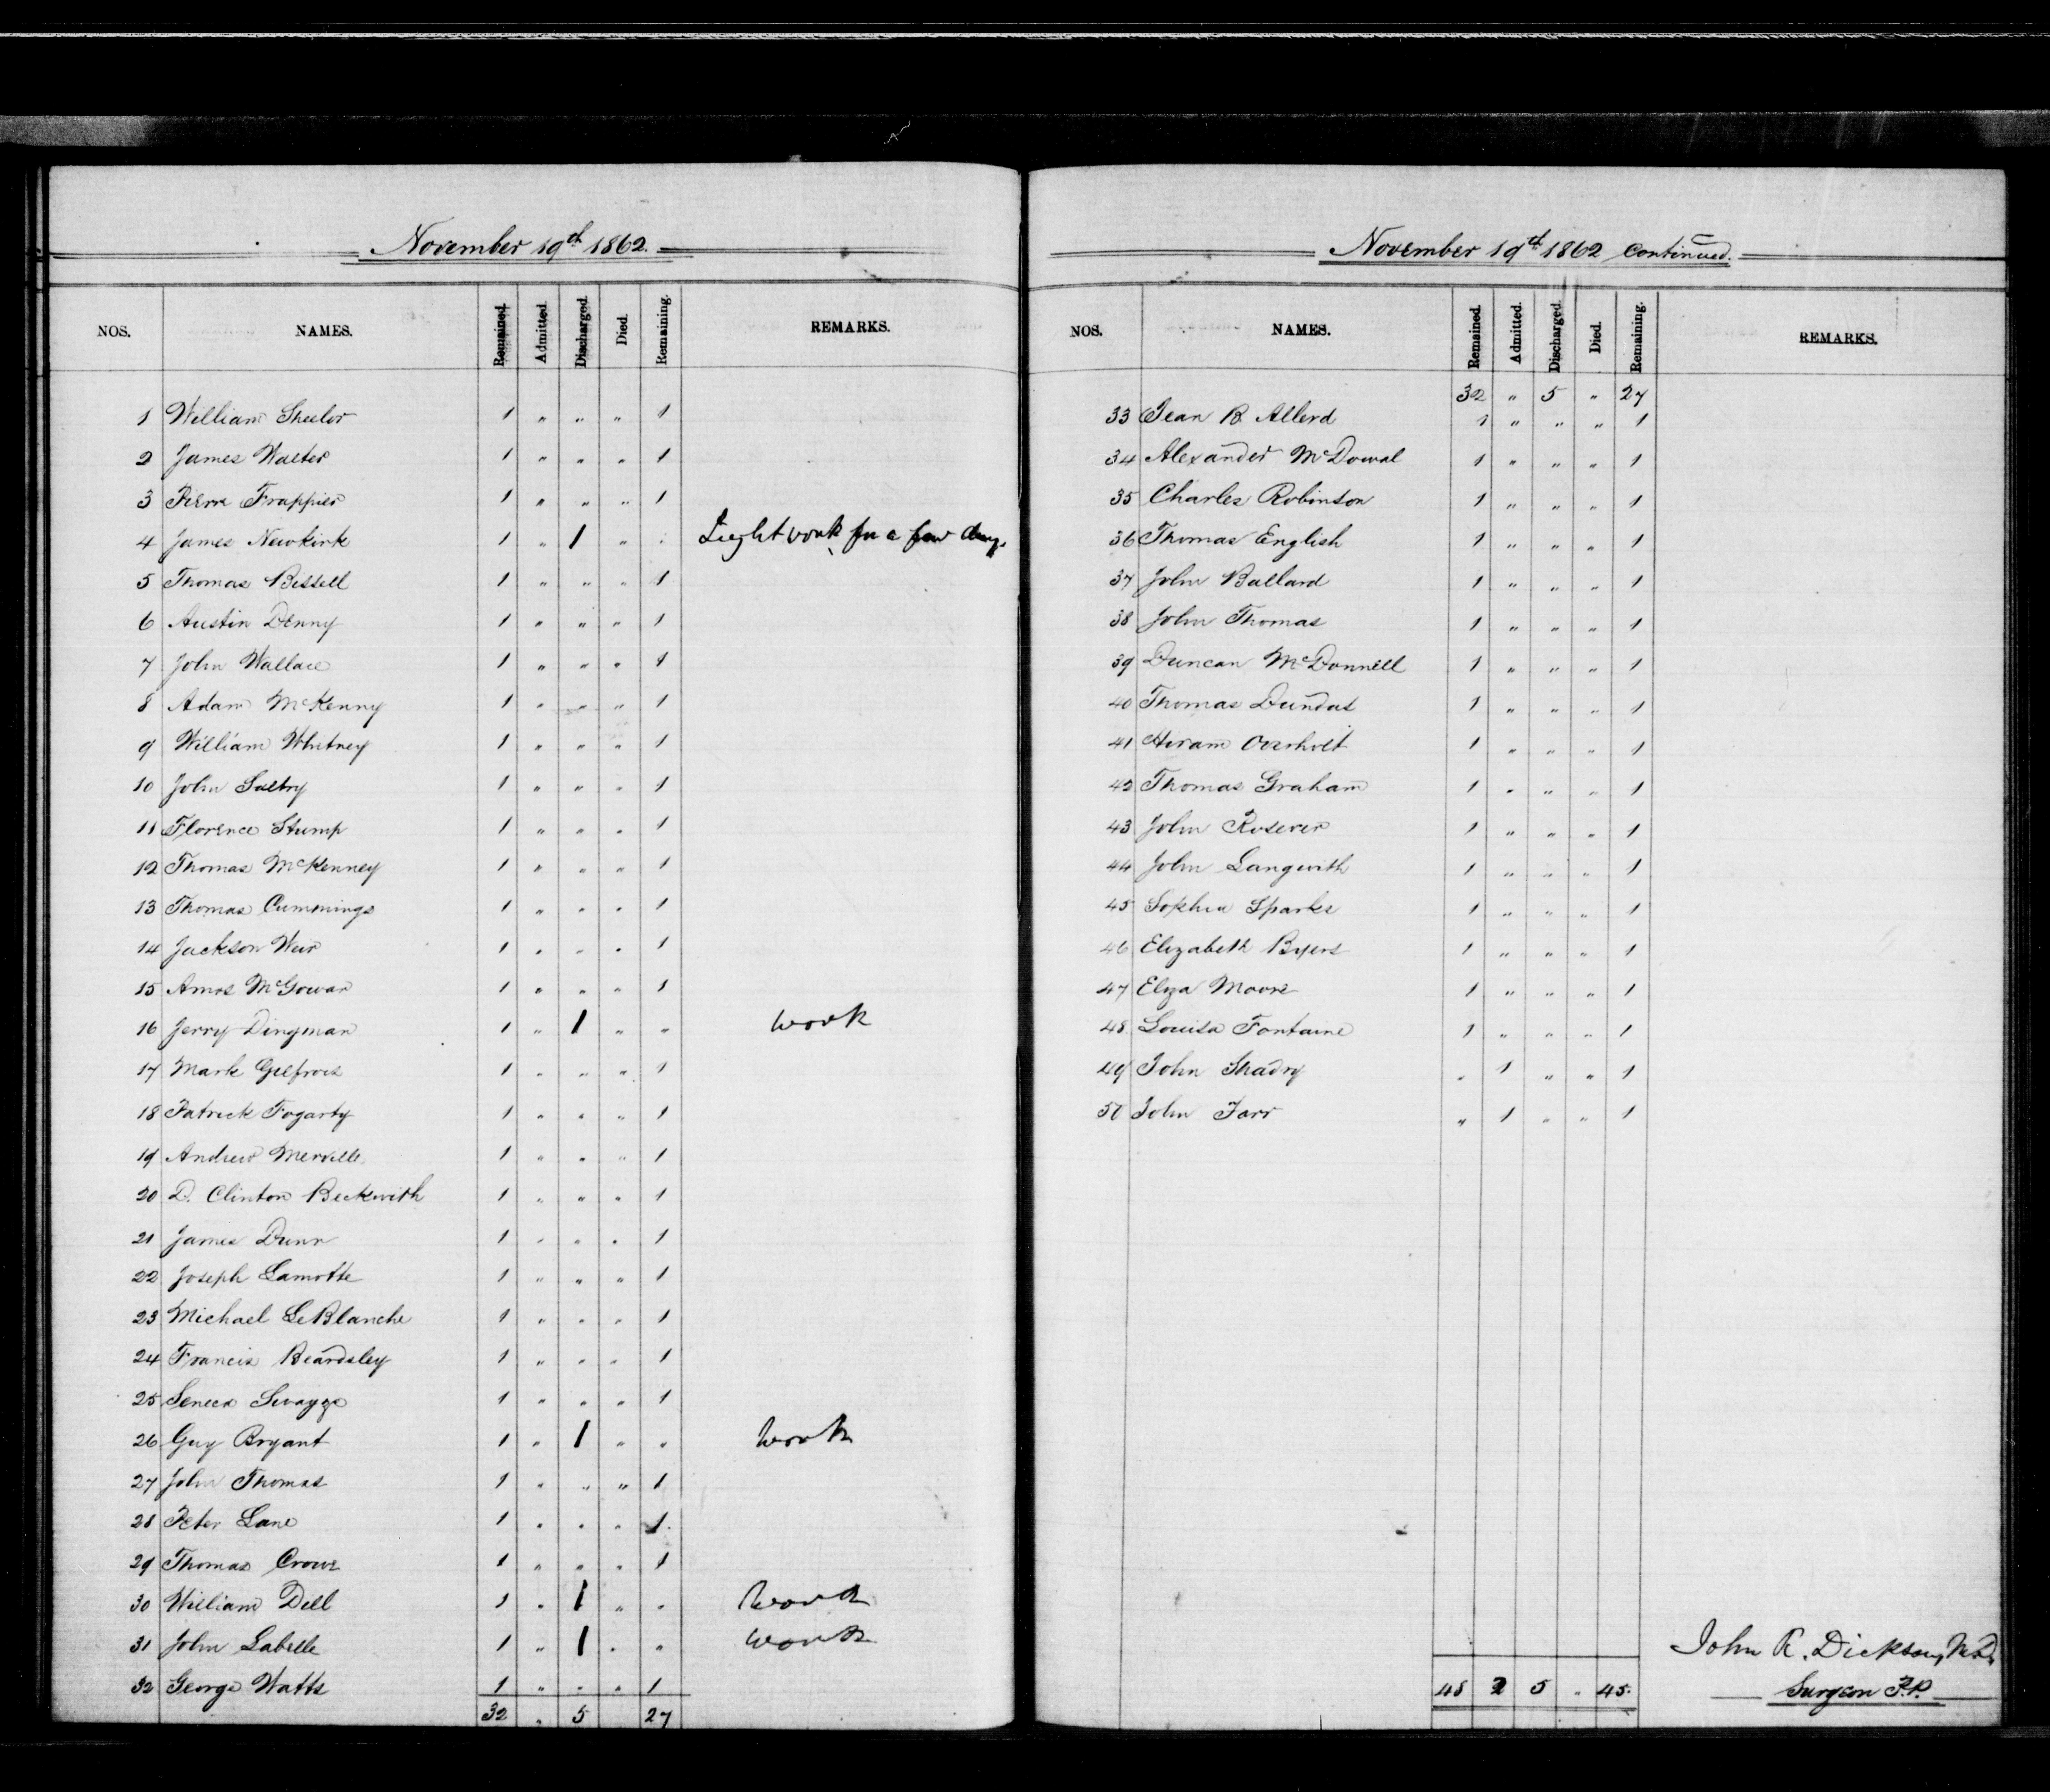 November 19th 1862.
NOS. NAMES. Remained. Admitted. Discharged. Died. Remaining. REMARKS.
1 William Sheeler 1 " " " 1
2 James Walter 1 " " " 1
3 Pierre Frappier 1 " " " 1
4 James Newkirk 1 " 1 " " Light work for a few days.
5 Thomas Bissell 1 " " " 1
6 Austin Denny 1 " " " 1
7 John Wallace 1 " " " 1
8 Adam McKenny 1 " " " 1
9 William Whitney 1 " " " 1
10 John 1 " " " 1
11 Florence Stump 1 " " " 1
12 Thomas McKenney 1 " " " 1
13 Thomas Cummings 1 " " " 1
14 Jackson Weir 1 " " " 1
15 Amos McGowan 1 " " " 1
16 Jerry Dingman 1 " 1 " " work
17 Mark 1 " " " 1
18 Patrick Fogarty 1 " " " 1
19 Andrew Merville 1 " " " 1
20 D. Clinton Beckwith 1 " " " 1
21 James Dunn 1 " " " 1
22 Joseph Lamotte 1 " " " 1
23 Michael LeBlanche 1 " " " 1
24 Francis Beardsley 1 " " " 1
25 Seneca Swayze 1 " " " 1
26 Guy Bryant 1 " 1 " " work
27 John Thomas 1 " " " 1
28 Peter Lane 1 " " " 1
29 Thomas Crowe 1 " " " 1
30 William Dell 1 " 1 " " work
31 John Labelle 1 " 1 " " work
32 George Watts 1 " " " 1
32 " 5 27
November 19th 1862 Continued.
NOS. NAMES. Remained. Admitted. Discharged. Died. Remaining. REMARKS.
32 " 5 " 27
33 Jean B Allerd 1 " " " 1
34 Alexander McDowal 1 " " " 1
35 Charles Robinson 1 " " " 1
36 Thomas English 1 " " " 1
37 John Ballard 1 " " " 1
38 John Thomas 1 " " " 1
39 Duncan McDonnell 1 " " " 1
40 Thomas Dundas 1 " " " 1
41 Hiram Overholt 1 " " " 1
42 Thomas Graham 1 " " " 1
43 John Rosever 1 " " " 1
44 John Langwith 1 " " " 1
45 Sophia Sparks 1 " " " 1
46 Elizabeth Byers 1 " " " 1
47 Eliza Moore 1 " " " 1
48 Louisa Fontaine 1 " " " 1
49 John Shadry " 1 " " 1
50 John Farr " 1 " " 1
48 2 5 " 45.
John R. Dickson, M.D.
Surgeon P.P.